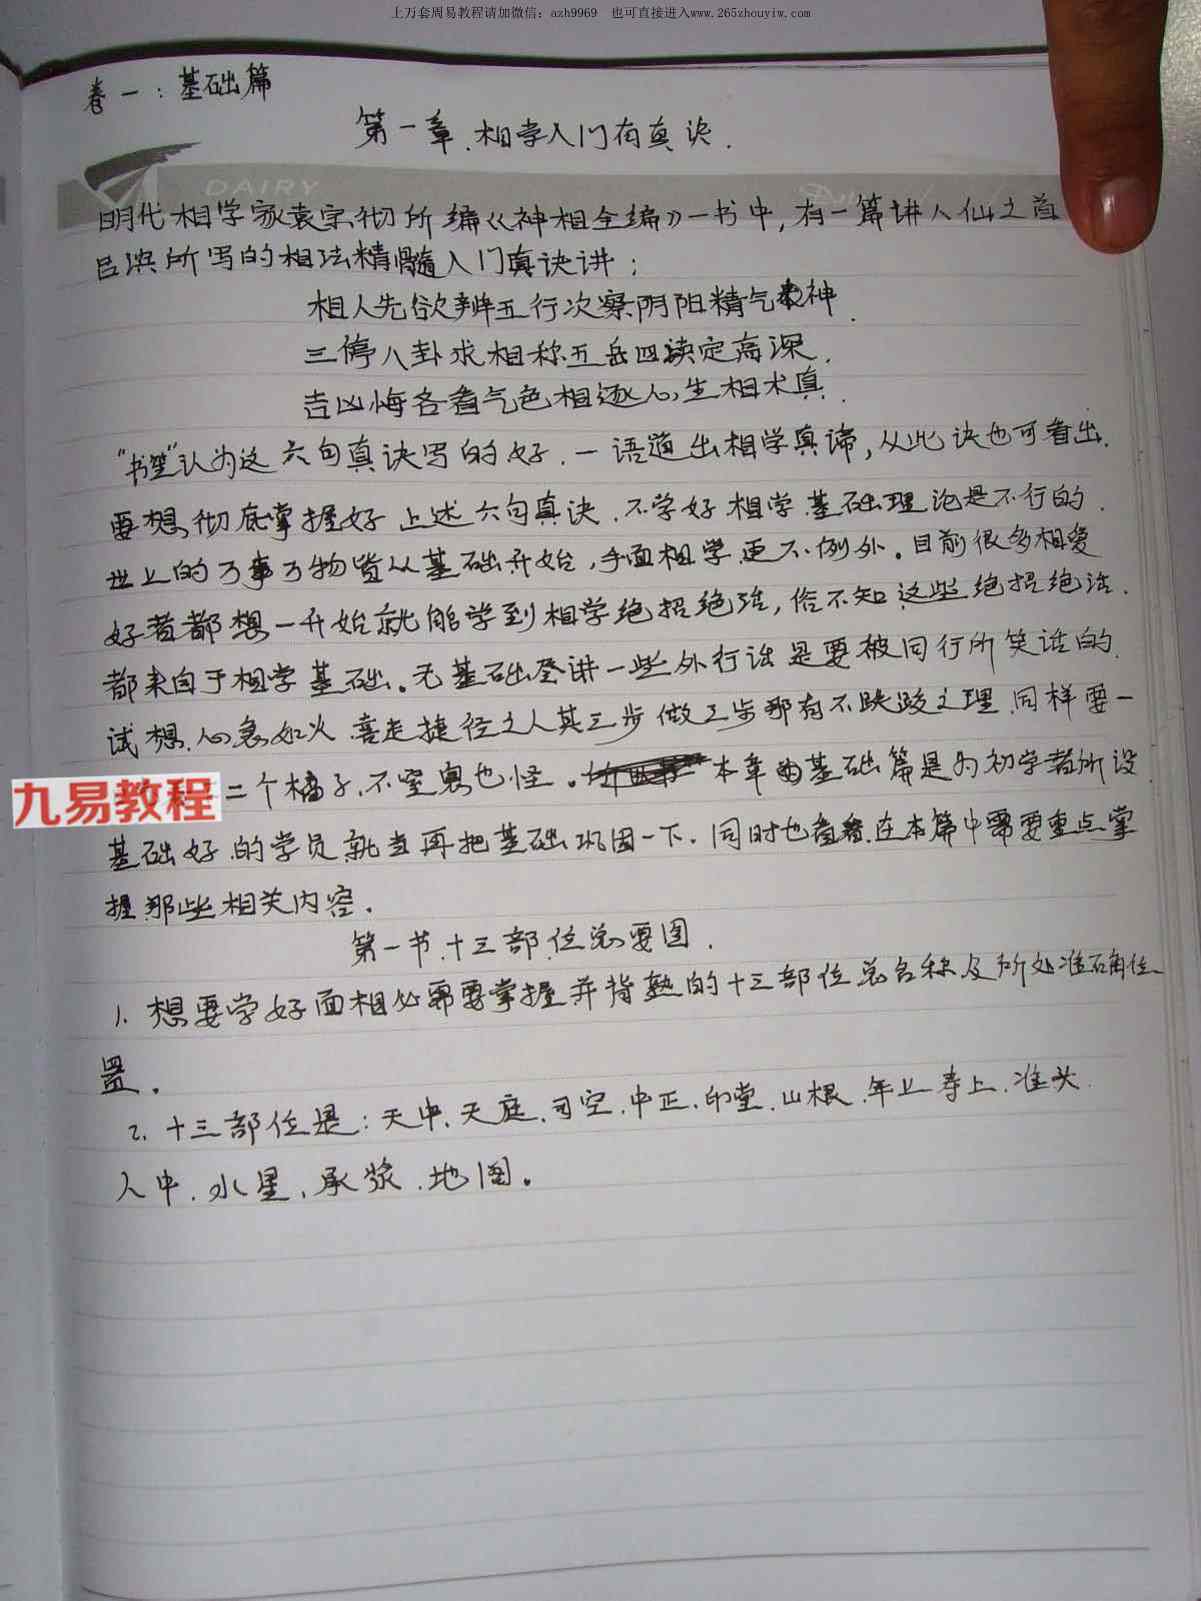 上万套周易教程请加微信：azh9969 也可直接进入www.265zhouyiw.com
卷一：基础篇
第一章.相学入门有真诀.
DAIRY
明代相学家袁宗彻所编《神相全编》一书中,有一篇讲八仙之首
吕洪所写的相法精髓入门真诀讲：
相人先欲辨五行次察阴阳精气神.
三停八卦求相称五岳四渎定高深.
吉凶悔各看气色相逐心生相术真.
"书笙"认为这六句真诀写的好.一语道出相学真谛,从此诀也可看出.
要想彻底掌握好上述六句真诀.不学好相学基础理论是不行的.
世上的万事万物皆从基础开始,手面相学更不例外。目前很多相爱
好者都想一开始就能学到相学绝招绝活,俗不知这些绝招绝活.
都来自于相学基础。无基础登讲一些外行话是要被同行所笑话的.
试想.心急如火.喜走捷径之人其三步做二步那有不跌跤之理.同样要一
九易教程
二个橘子.不窒息也怪。本章的基础篇是为初学者所设.
基础好的学员就当再把基础巩固一下.同时也看看.在本篇中需要重点掌
握那些相关内容.
第一节.十三部位总要图.
1.想要学好面相必需要掌握并背熟的十三部位总名称及所处准确位
置.
2.十三部位是:天中.天庭.司空.中正.印堂.山根.年上寿上.准头.
人中.水星、承浆.地阁。